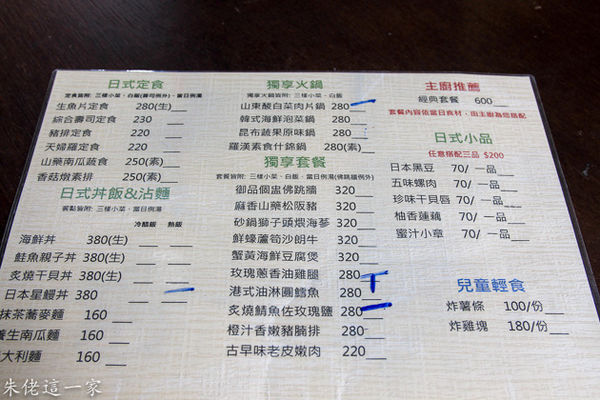 日式定食
定食皆附: 三樣小菜、白飯(壽司例外)、當日例湯
生魚片定食 280(生)
綜合壽司定食 230
豬排定食 220
天婦羅定食 220
山藥南瓜蔬食 250(素)
香菇燉素排 250(素)
日式丼飯&沾麵
套餐皆附: 三樣小菜、當日例湯
冷醋飯 熱飯
海鮮丼 380(生)
鮭魚親子丼 380(生)
炙燒干貝丼 380(生)
日本星鰻丼 380
抹茶蕎麥麵 160
養生南瓜麵 160
大利麵 160
獨享火鍋
獨享火鍋皆附: 三樣小菜、白飯
山東酸白菜肉片鍋 280
韓式海鮮泡菜鍋 280
昆布蔬果原味鍋 280
羅漢素食什錦鍋 280
獨享套餐
套餐皆附: 三樣小菜、白飯、當日例湯(佛跳牆例外)
御品個盅佛跳牆 320
麻香山藥松阪豬 320
砂鍋獅子頭煨海蔘 320
鮮蠔蘆筍沙朗牛 320
蟹黃海鮮豆腐煲 320
玫瑰蔥香油雞腿 280
港式油淋圓鱈魚 280
炙燒鯖魚佐玫瑰鹽 280
橙汁香嫩豬腩排 280
古早味老皮嫩肉 220
主廚推薦
經典套餐 600
套餐內容依當日食材，由主廚為您搭配
日式小品
任意搭配三品 $200
日本黑豆 70/ 一品
五味螺肉 70/ 一品
珍味干貝唇 70/ 一品
柚香蓮藕 70/ 一品
蜜汁小章 70/ 一品
兒童輕食
炸薯條 100/份
炸雞塊 180/份
朱佬這一家